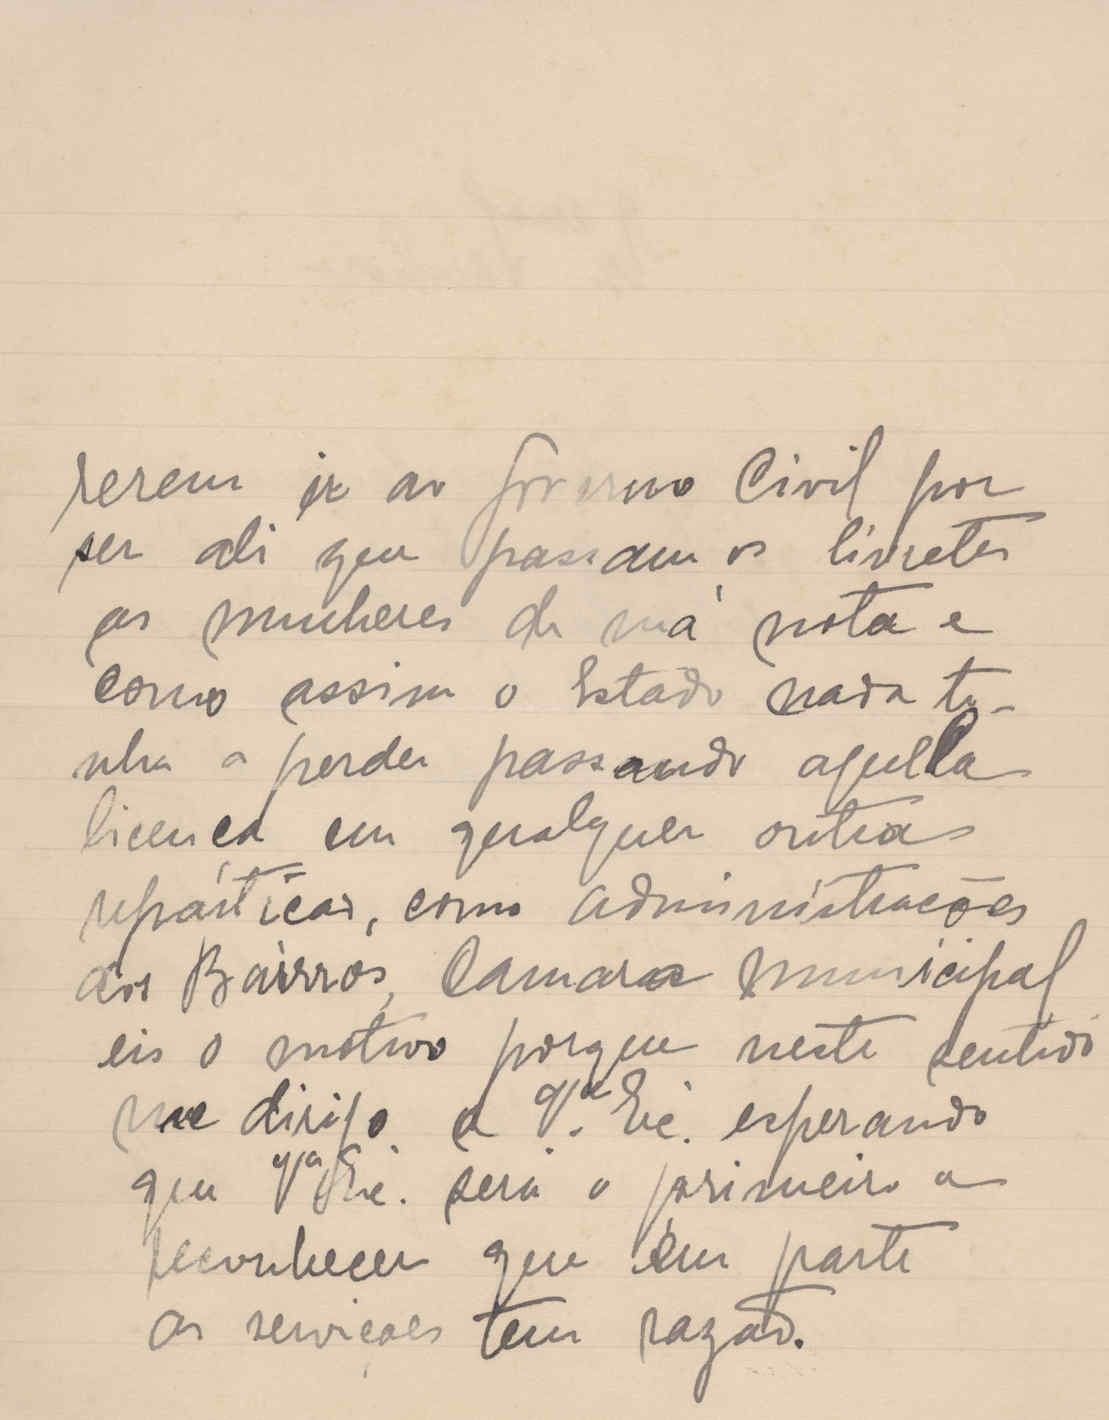 rerem ir ao Governo Civil por
ser ali que passam os livretes
as mulheres de má nota e
como assim o Estado nada te-
nha a perder passando aquella
licença em qualquer outras
repárticas, como administracões
dos Bairros, Camara Municipal
eis o motivo porque neste sentido
me dirijo a Vª. Exé. esperando
que Vª Exé. será o primeiro a
reconhecer que em parte
as serviçaes tem razaõ.